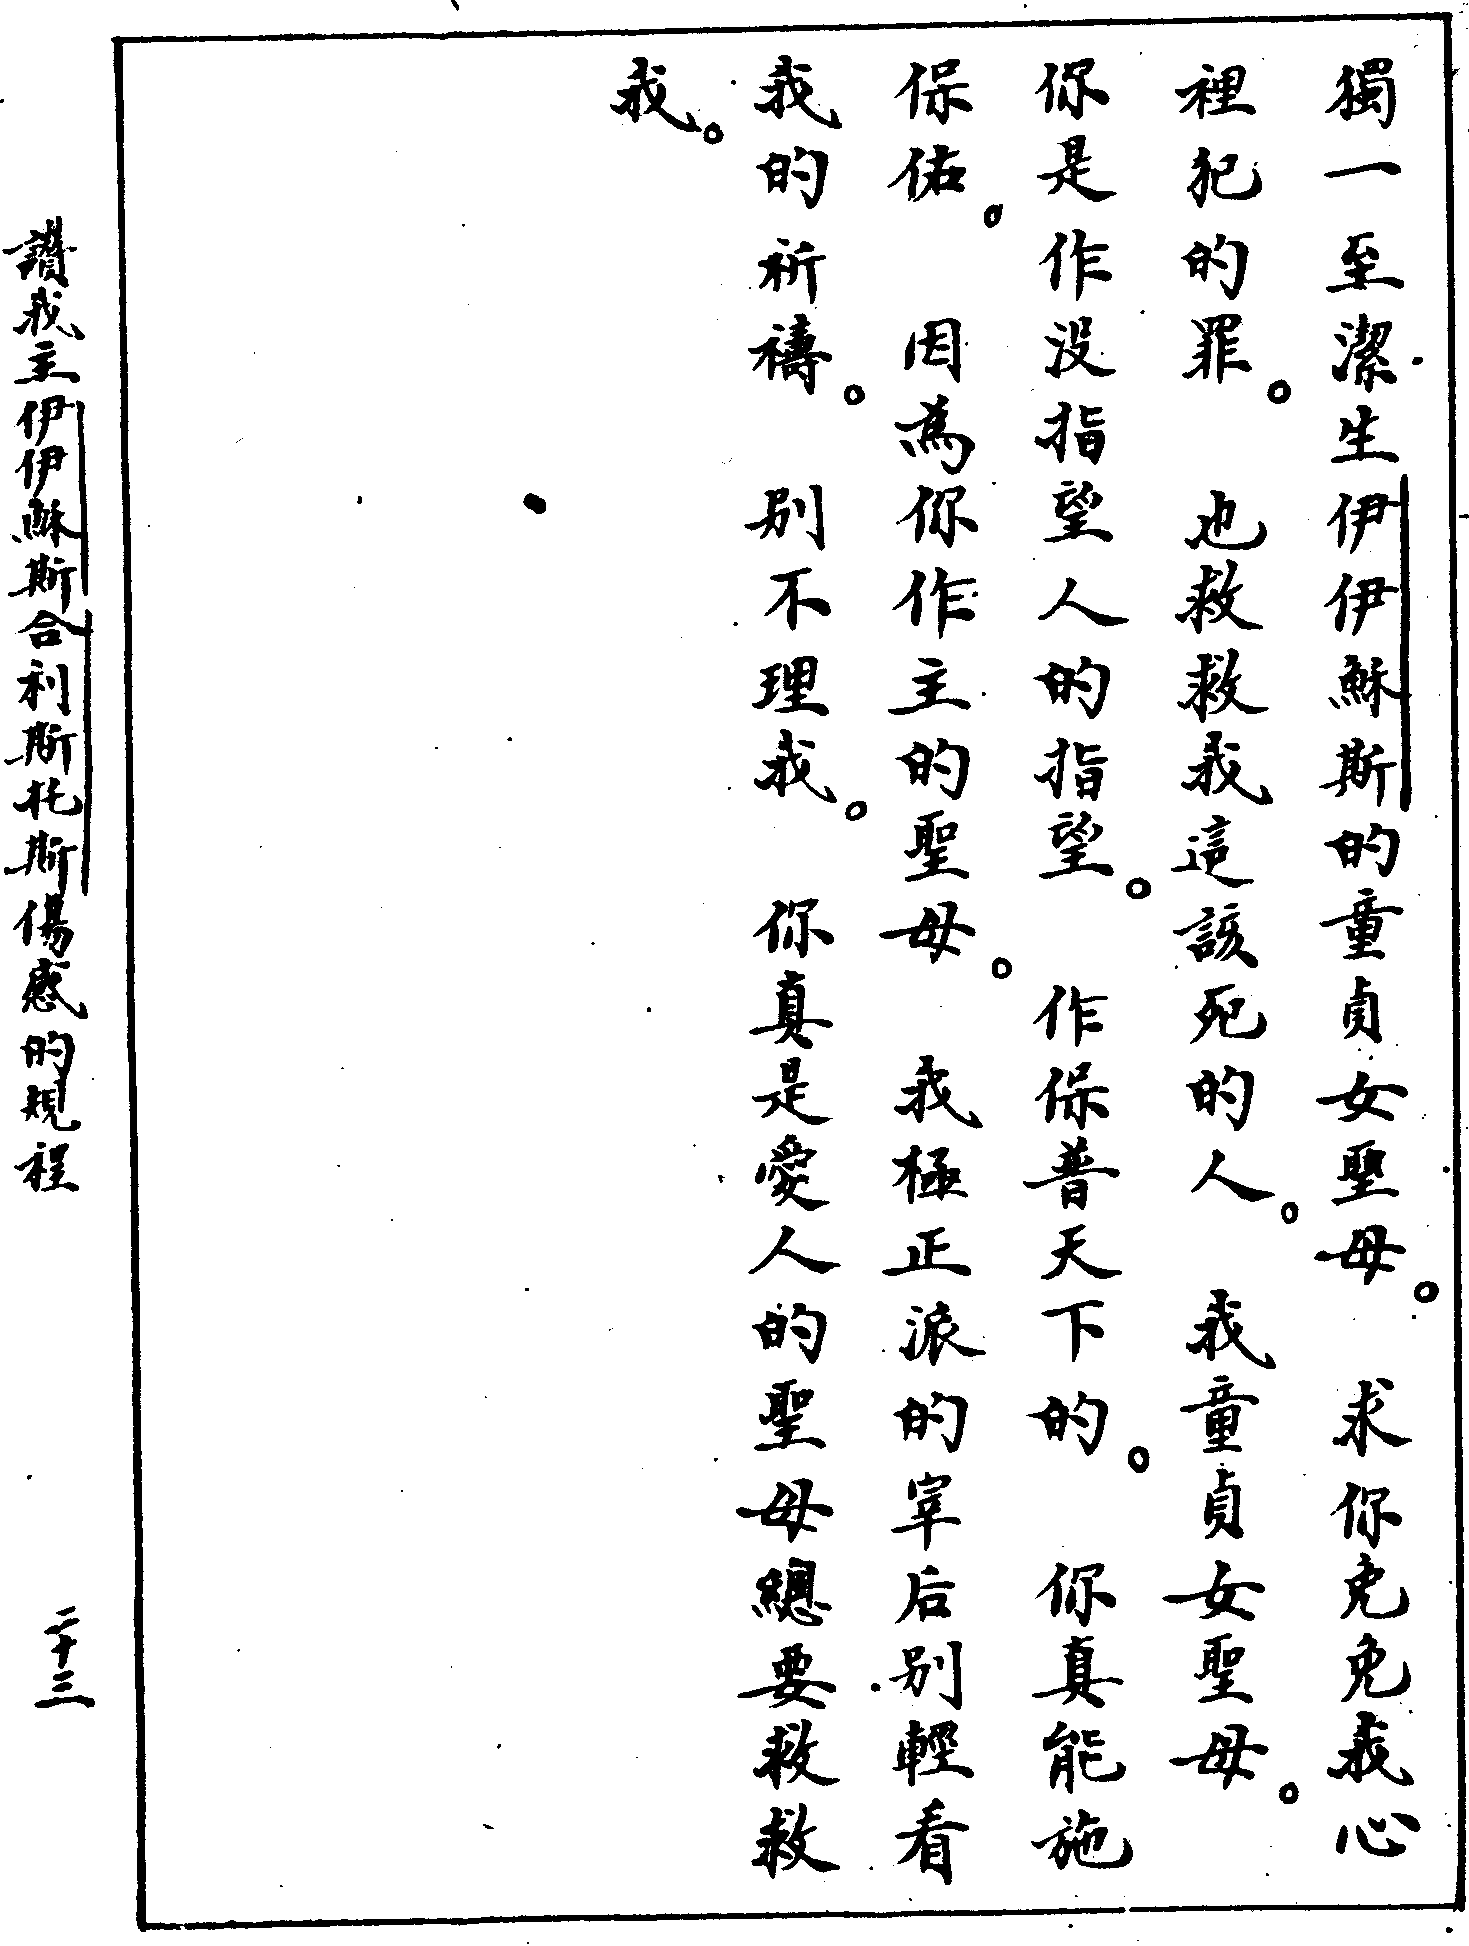 獨一至潔生伊伊穌斯的童貞女聖母。求你免免我心
裡犯的罪。也救救我這該死的人。我童貞女聖母。
你是作沒指望人的指望。作保普天下的。你真能施
保佑。因為你作主的聖母。我極正派的宰后別輕看
我的祈禱。別不理我。你真是愛人的聖母總要救救
我。
讚我主伊伊穌斯合利斯托斯傷感的規程
二十三